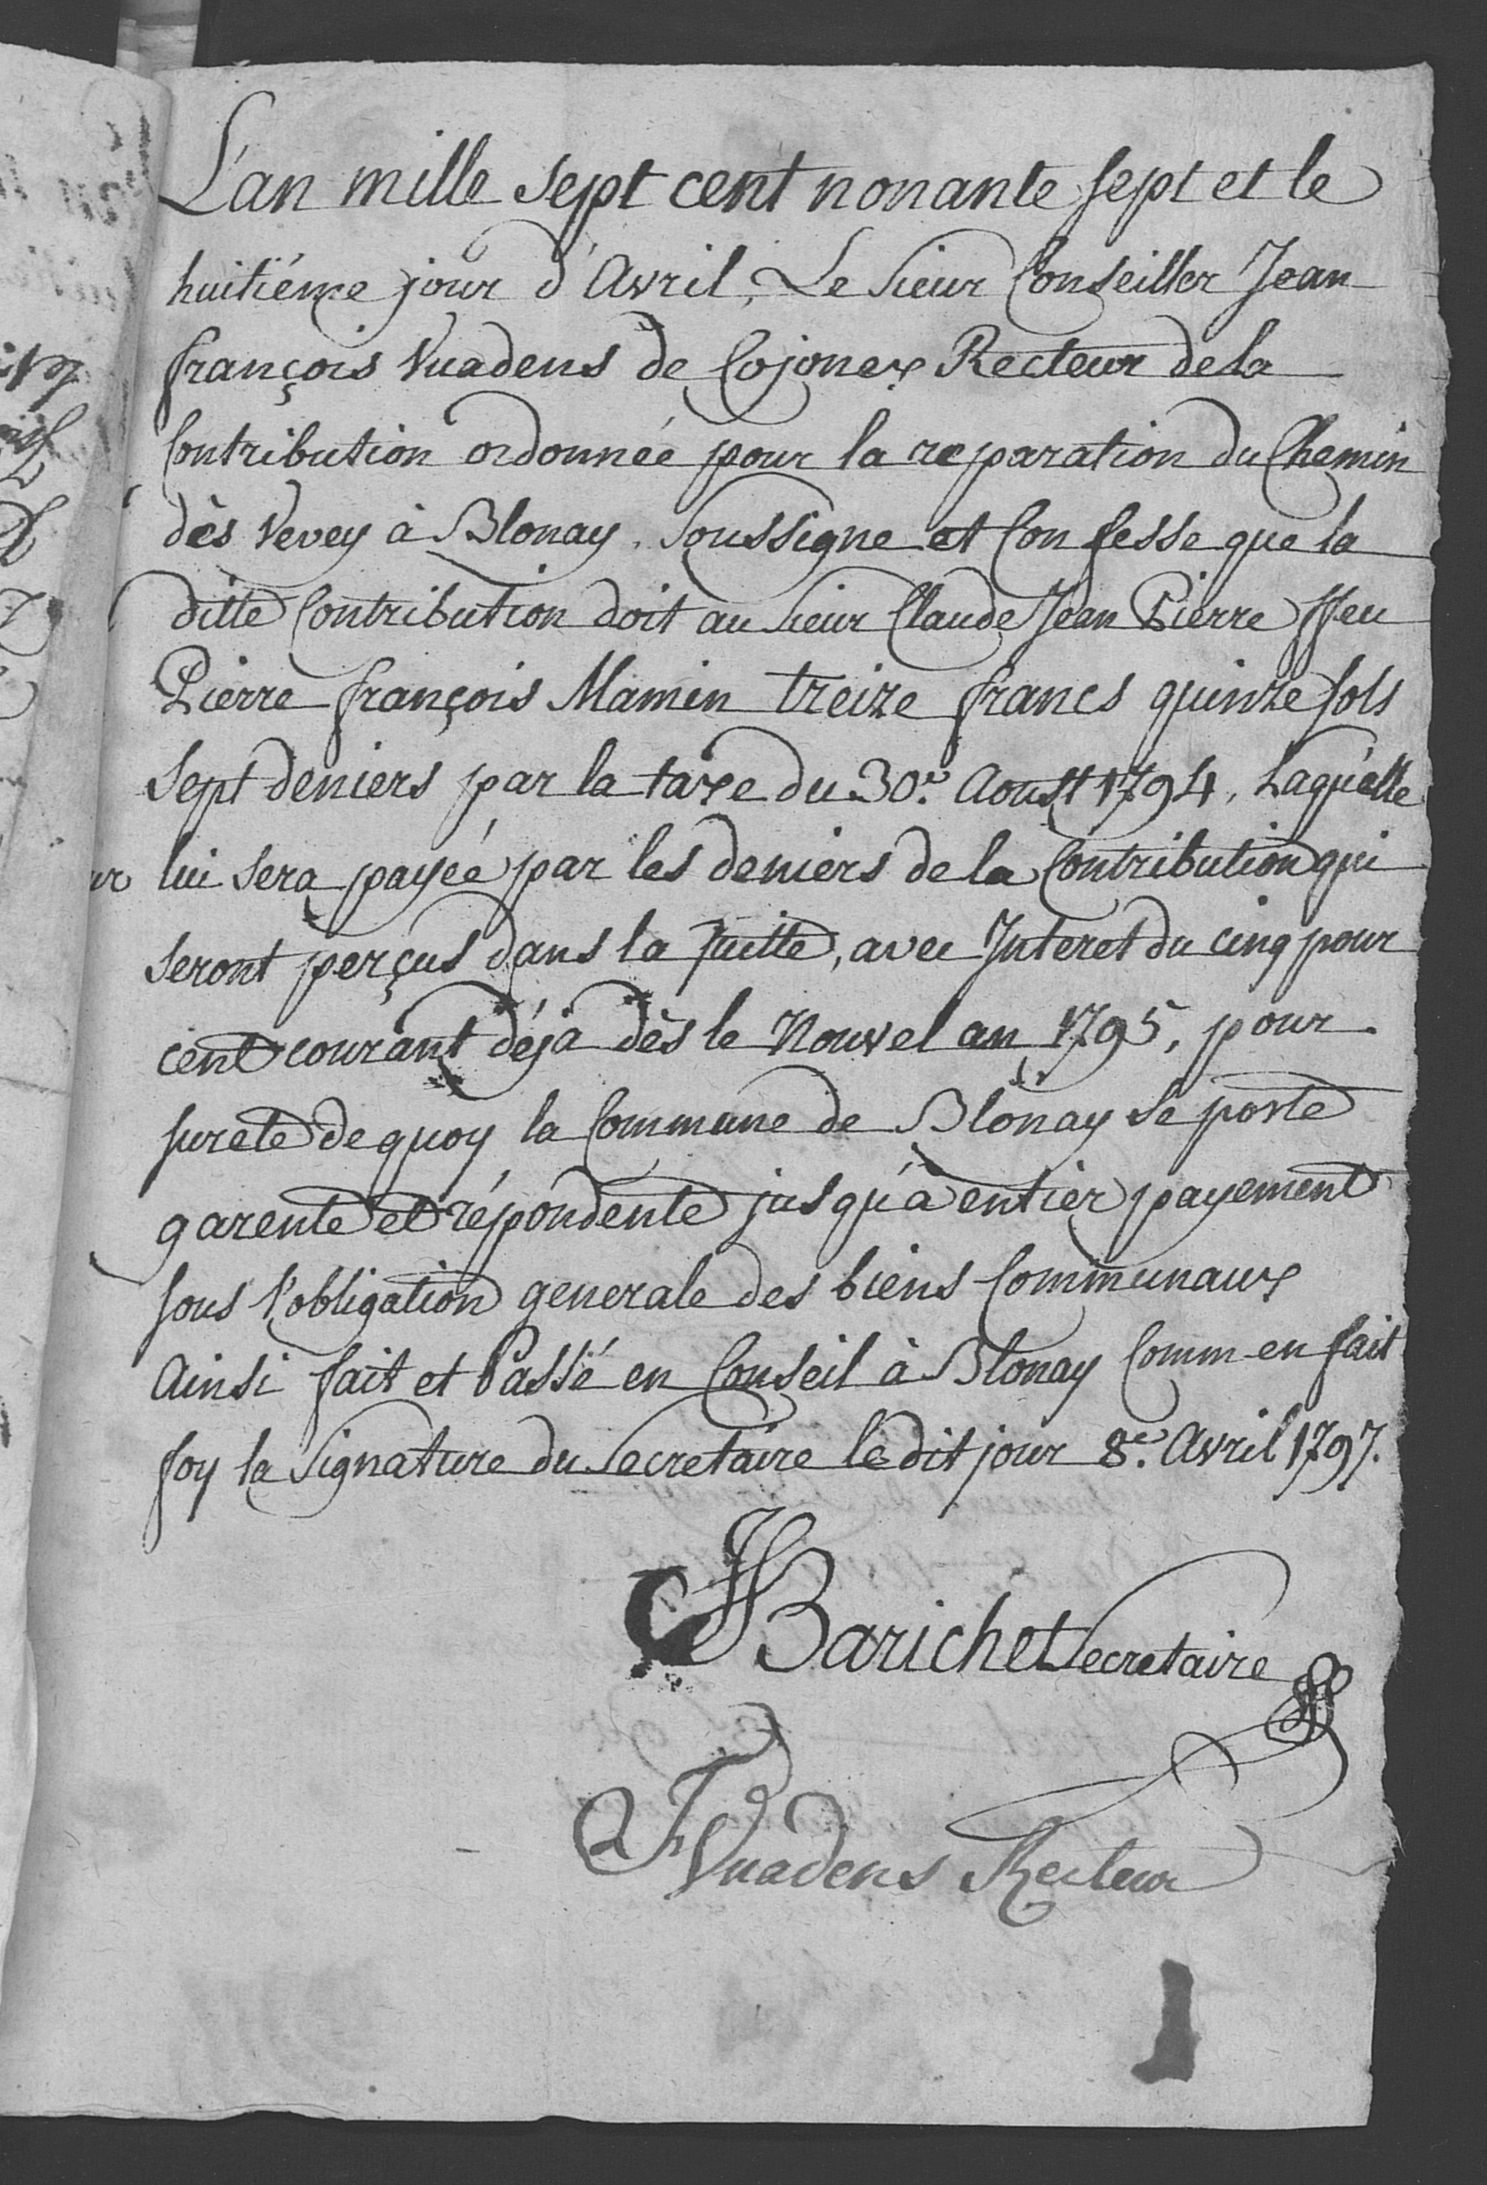 L'an mille sept cent nonante sept et le
huitiéme jour d'Avril, Le sieur Conseiller Jean
françois Vuadens de Cojonex Recteur de la
Contribution ordonnée pour la reparation du Chemin
dès Vevey à Blonay, soussigne et Confesse que la
ditte Contribution doit au sieur Claude Jean Pierre ffeu
Pierre françois Mamin treize francs quinze sols
sept deniers par la taxe du 30e. Aoust 1794, Laquelle
lui sera payéé par les deniers de la Contribution qui
seront perçus dans la suitte, avec Interet du cinq pour
cent courant déja dès le Nouvel an 1795, pour
sureté de quoy la Commune de Blonay se porte
garente et répondente jusqu'à entier payement
sous l'obligation generale des biens Communaux
Ainsi fait et Passé en Conseil à Blonay Comm en fait
foy la signature du secretaire le dit jour 8e. Avril 1797.
Barichet secretaire
Vuadens Recteur